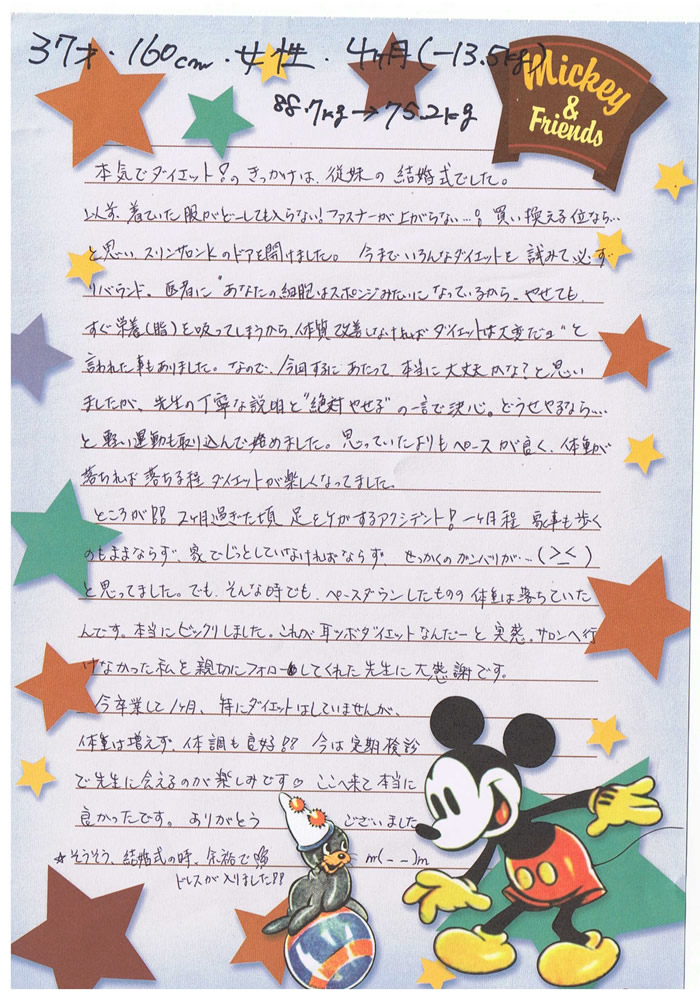 37才・160cm・女性・4ヶ月(-13.5kg)
88.7kg→75.2kg
Mickey
&
Friends
本気でダイエット!のきっかけは、従妹の結婚式でした。
以前、着ていた服がどーしても入らない!ファスナーが上がらない…。買い換える位なら…
と思い、スリンサロンドのドアを開けました。今までいろんなダイエットを試みて必ず
リバウンド。医者に"あなたの細胞はスポンジみたいになっているから、やせても
すぐ栄養(脂)を吸ってしまうから、体質改善しなければダイエットは大変だョ"と
言われた事もありました。なので、今回するにあたって本当に大丈夫かな?と思い
ましたが、先生の丁寧な説明と"絶対やせる"の一言で決心。どうせやるなら…
と軽い運動も取り込んで始めました。思っていたよりもペースが良く、体重が
落ちれば落ちる程ダイエットが楽しくなってました。
ところが!!2ヶ月過ぎた頃足をケガするアクシデント!一ヶ月程家事も歩く
のもままならず、家でじっとしていなければならず、せっかくのガンバリが…(><)
と思ってました。でも、そんな時でも、ペースダウンしたものの体重は落ちていた
んです。本当にビックリしました。これが耳ツボダイエットなんだーと実感。サロンへ行
けなかった私を親切にフォローしてくれた先生に大感謝です。
今卒業して1ヶ月、特にダイエットはしていませんが、
体重は増えず、体調も良好!!今は定期検診
で先生に会えるのが楽しみです♡ここへ来て本当に
良かったです。ありがとうございました
☆そうそう、結婚式の時、余裕で m(--)m
ドレスが入りました!!